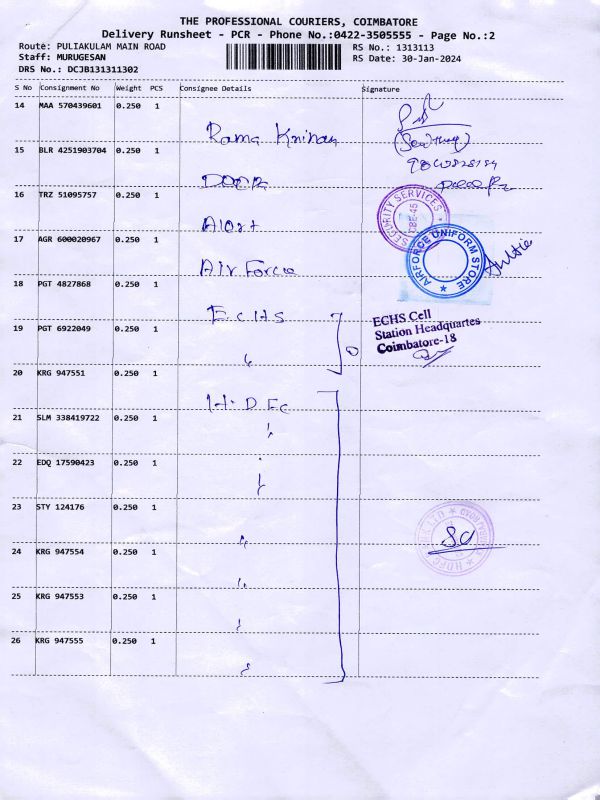 THE PROFESSIONAL COURIERS, COIMBATORE
Delivery Runsheet - PCR - Phone No.:0422-3505555 - Page No.:2
Route: PULIAKULAM MAIN ROAD RS No.: 1313113
Staff: MURUGESAN RS Date: 30-Jan-2024
DRS No.: DCJB131311302
S No Consignment No Weight PCS Consignee Details Signature
14 MAA 570439601 0.250 1
Rama
15 BLR 4251903704 0.250 1
16 TRZ 51095757 0.250 1
SECURITY SERVICES
CBE-45
Alert
17 AGR 600020967 0.250 1
AIRFORCE UNIFORM STORE
Air Force
18 PGT 4827868 0.250 1
ECHS
ECHS Cell
Station Headquartes
Coimbatore-18
19 PGT 6922049 0.250 1
20 KRG 947551 0.250 1
H.D.Fc
21 SLM 338419722 0.250 1
22 EDQ 17590423 0.250 1
23 STY 124176 0.250 1
24 KRG 947554 0.250 1
25 KRG 947553 0.250 1
26 KRG 947555 0.250 1